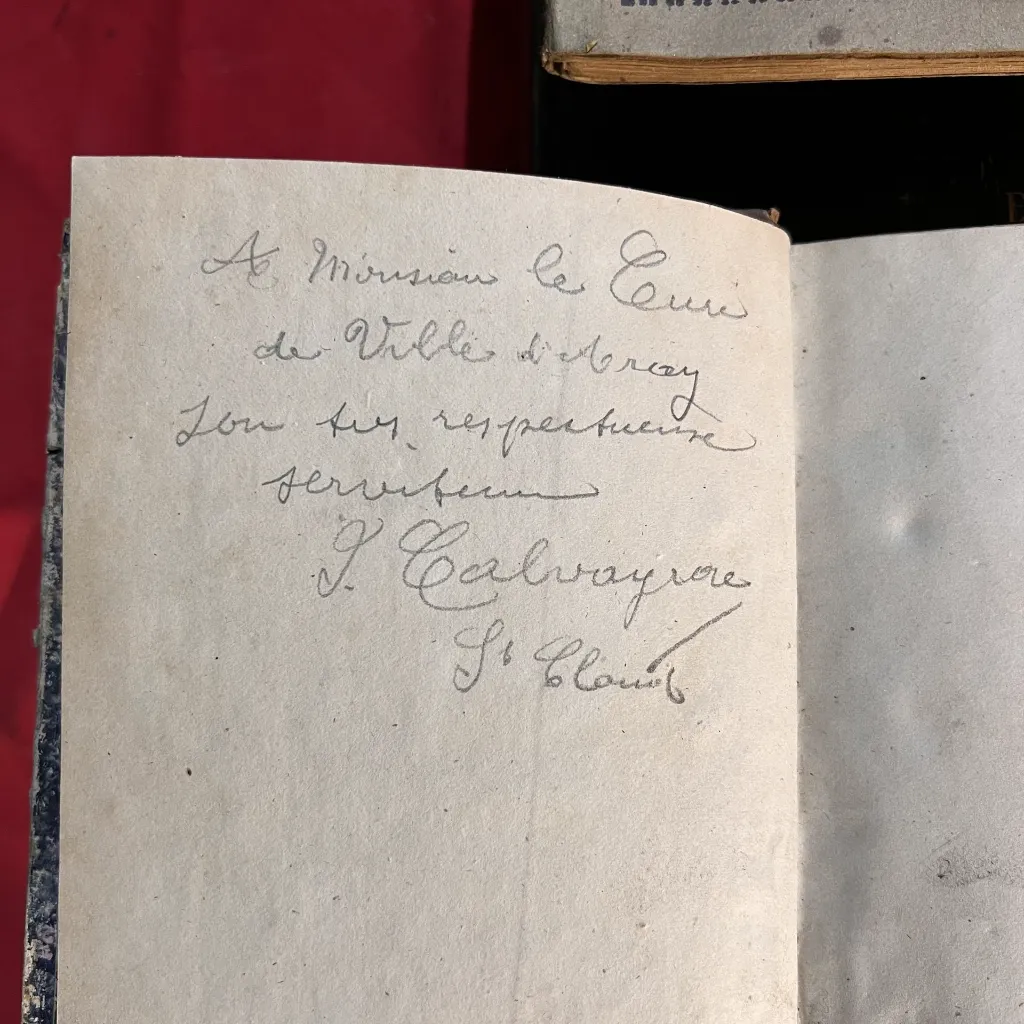 A Monsieur le Curé
de Ville d'Avray
Son très respectueux
serviteur
J. Calvayrac
St Cloud